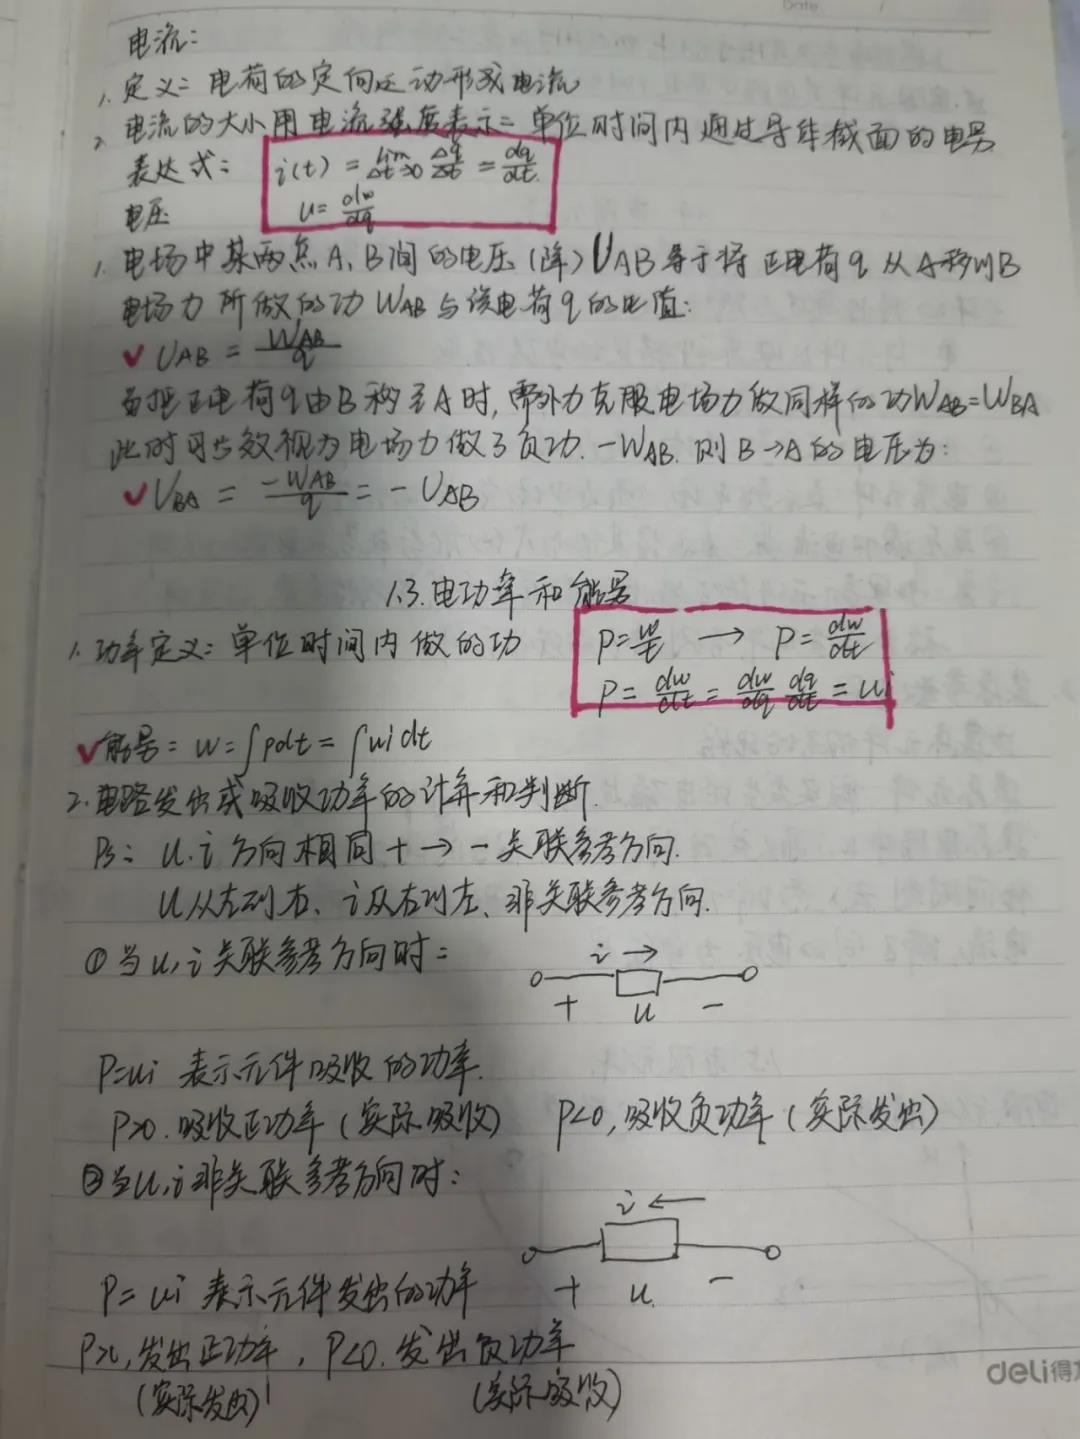 Date
电流:
1. 定义: 电荷的定向运动形成电流
2. 电流的大小用电流强度表示: 单位时间内通过导体截面的电量
表达式: i(t) = lim Δt→0 Δq/Δt = dq/dt.
电压 u = dw/dq
1. 电场中某两点A、B间的电压(降)UAB等于将正电荷q从A移到B
电场力所做的功WAB与该电荷q的比值:
✓ UAB = WAB/q
当把正电荷q由B移至A时, 需外力克服电场力做同样的功WAB=WBA
此时可等效视为电场力做了负功. -WAB. 则B→A的电压为:
✓ UBA = -WAB/q = - UAB
1.3. 电功率和能量
1. 功率定义: 单位时间内做的功 P=w/t → P=dw/dt
P = dw/dt = dw/dq dq/dt = ui
✓ 能量: w=∫pdt=∫ui dt
2. 电路发出或吸收功率的计算和判断.
Ps: u.i方向相同 + → - 关联参考方向.
u从左到右、i从右到左、非关联参考方向.
① 当u,i关联参考方向时:
i →
+ u -
P=ui 表示元件吸收的功率.
P>0. 吸收正功率(实际吸收) P<0, 吸收负功率(实际发出)
② 当u,i非关联参考方向时:
i ←
+ u. -
P= ui 表示元件发出的功率
发出正功率, P<0. 发出负功率
(实际发出) (实际吸收)
deli得力